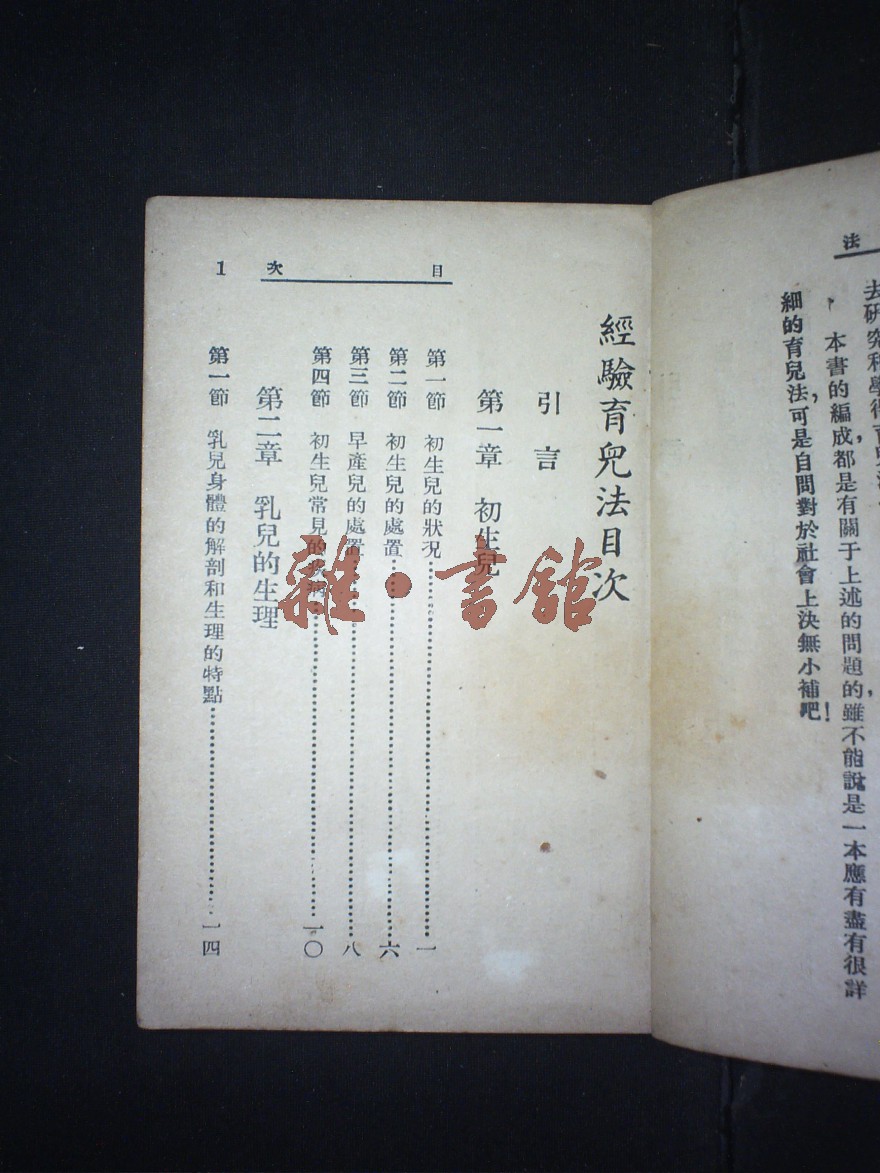 法
本書的編成，都是有關于上述的問題的，雖不能說是一本應有盡有很詳
細的育兒法，可是自問對於社會上決無小補吧！
目次
1
經驗育兒法目次
引言
第一章 初生兒
第一節 初生兒的狀況………一
第二節 初生兒的處置………六
第三節 早產兒的處置………八
第四節 初生兒常見的………一〇
第二章 乳兒的生理
第一節 乳兒身體的解剖和生理的特點………一四
雜·書館